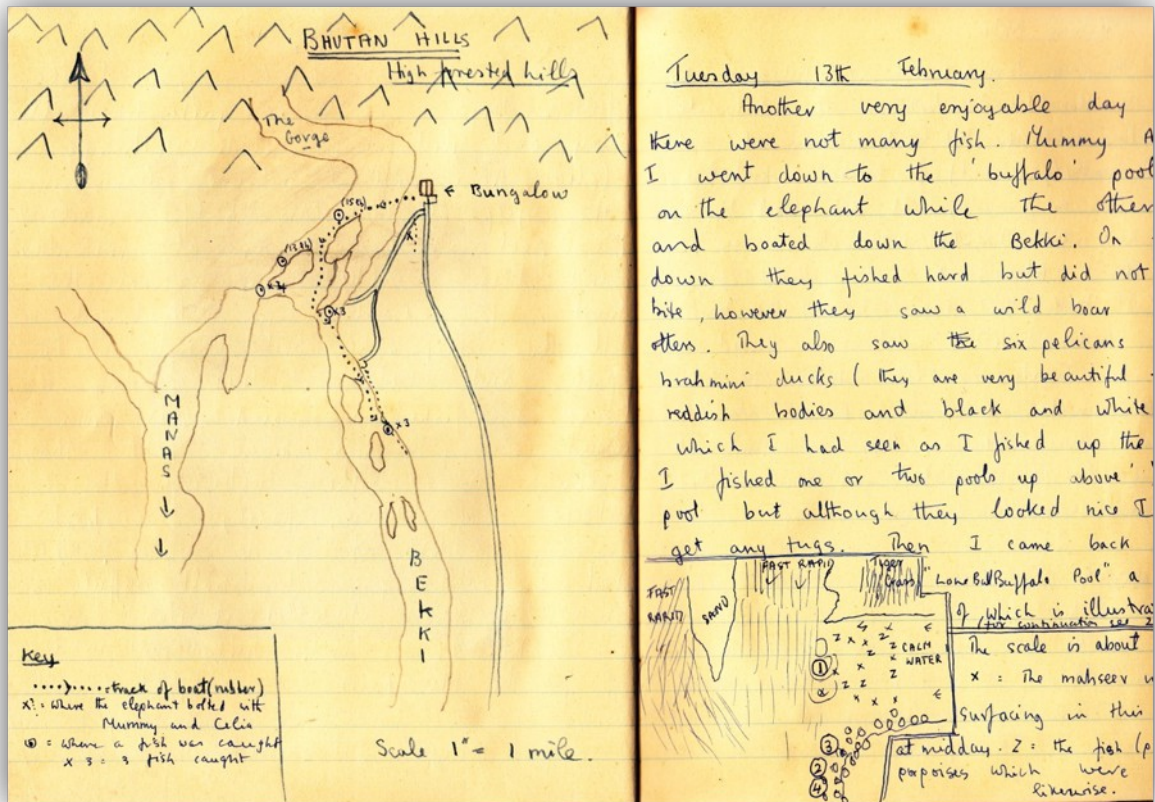 BHUTAN HILLS
High forested hills
The
Gorge
← Bungalow
(15 lb)
(13 lb)
x 3
x 3
MANAS
BEKKI
Key
track of boat (rubber)
x? = where the elephant bolted with
Mummy and Celia
⊙ = where a fish was caught
x 3 = 3 fish caught
Scale 1" = 1 mile.
Tuesday 13th February.
Another very enjoyable day
there were not many fish. Mummy A
I went down to the 'buffalo' pool
on the elephant while the other
and boated down the Bekki. On
down they fished hard but did not
bite, however they saw a wild boar
otters. They also saw the six pelicans
brahmini ducks (they are very beautiful
reddish bodies and black and white
which I had seen as I fished up the
I fished one or two pools up above '
pool but although they looked nice I
get any tugs. Then I came back
FAST
RAPID
SAND
FAST RAPID
Tiger
Grass
CALM
WATER
1
2
3
2
4
"Lone Bull Buffalo Pool" a
of which is illustra
(for continuation see 2
The scale is about
x = The mahseer w
surfacing in this
at midday. Z = the fish (p
porpoises which were
likewise.